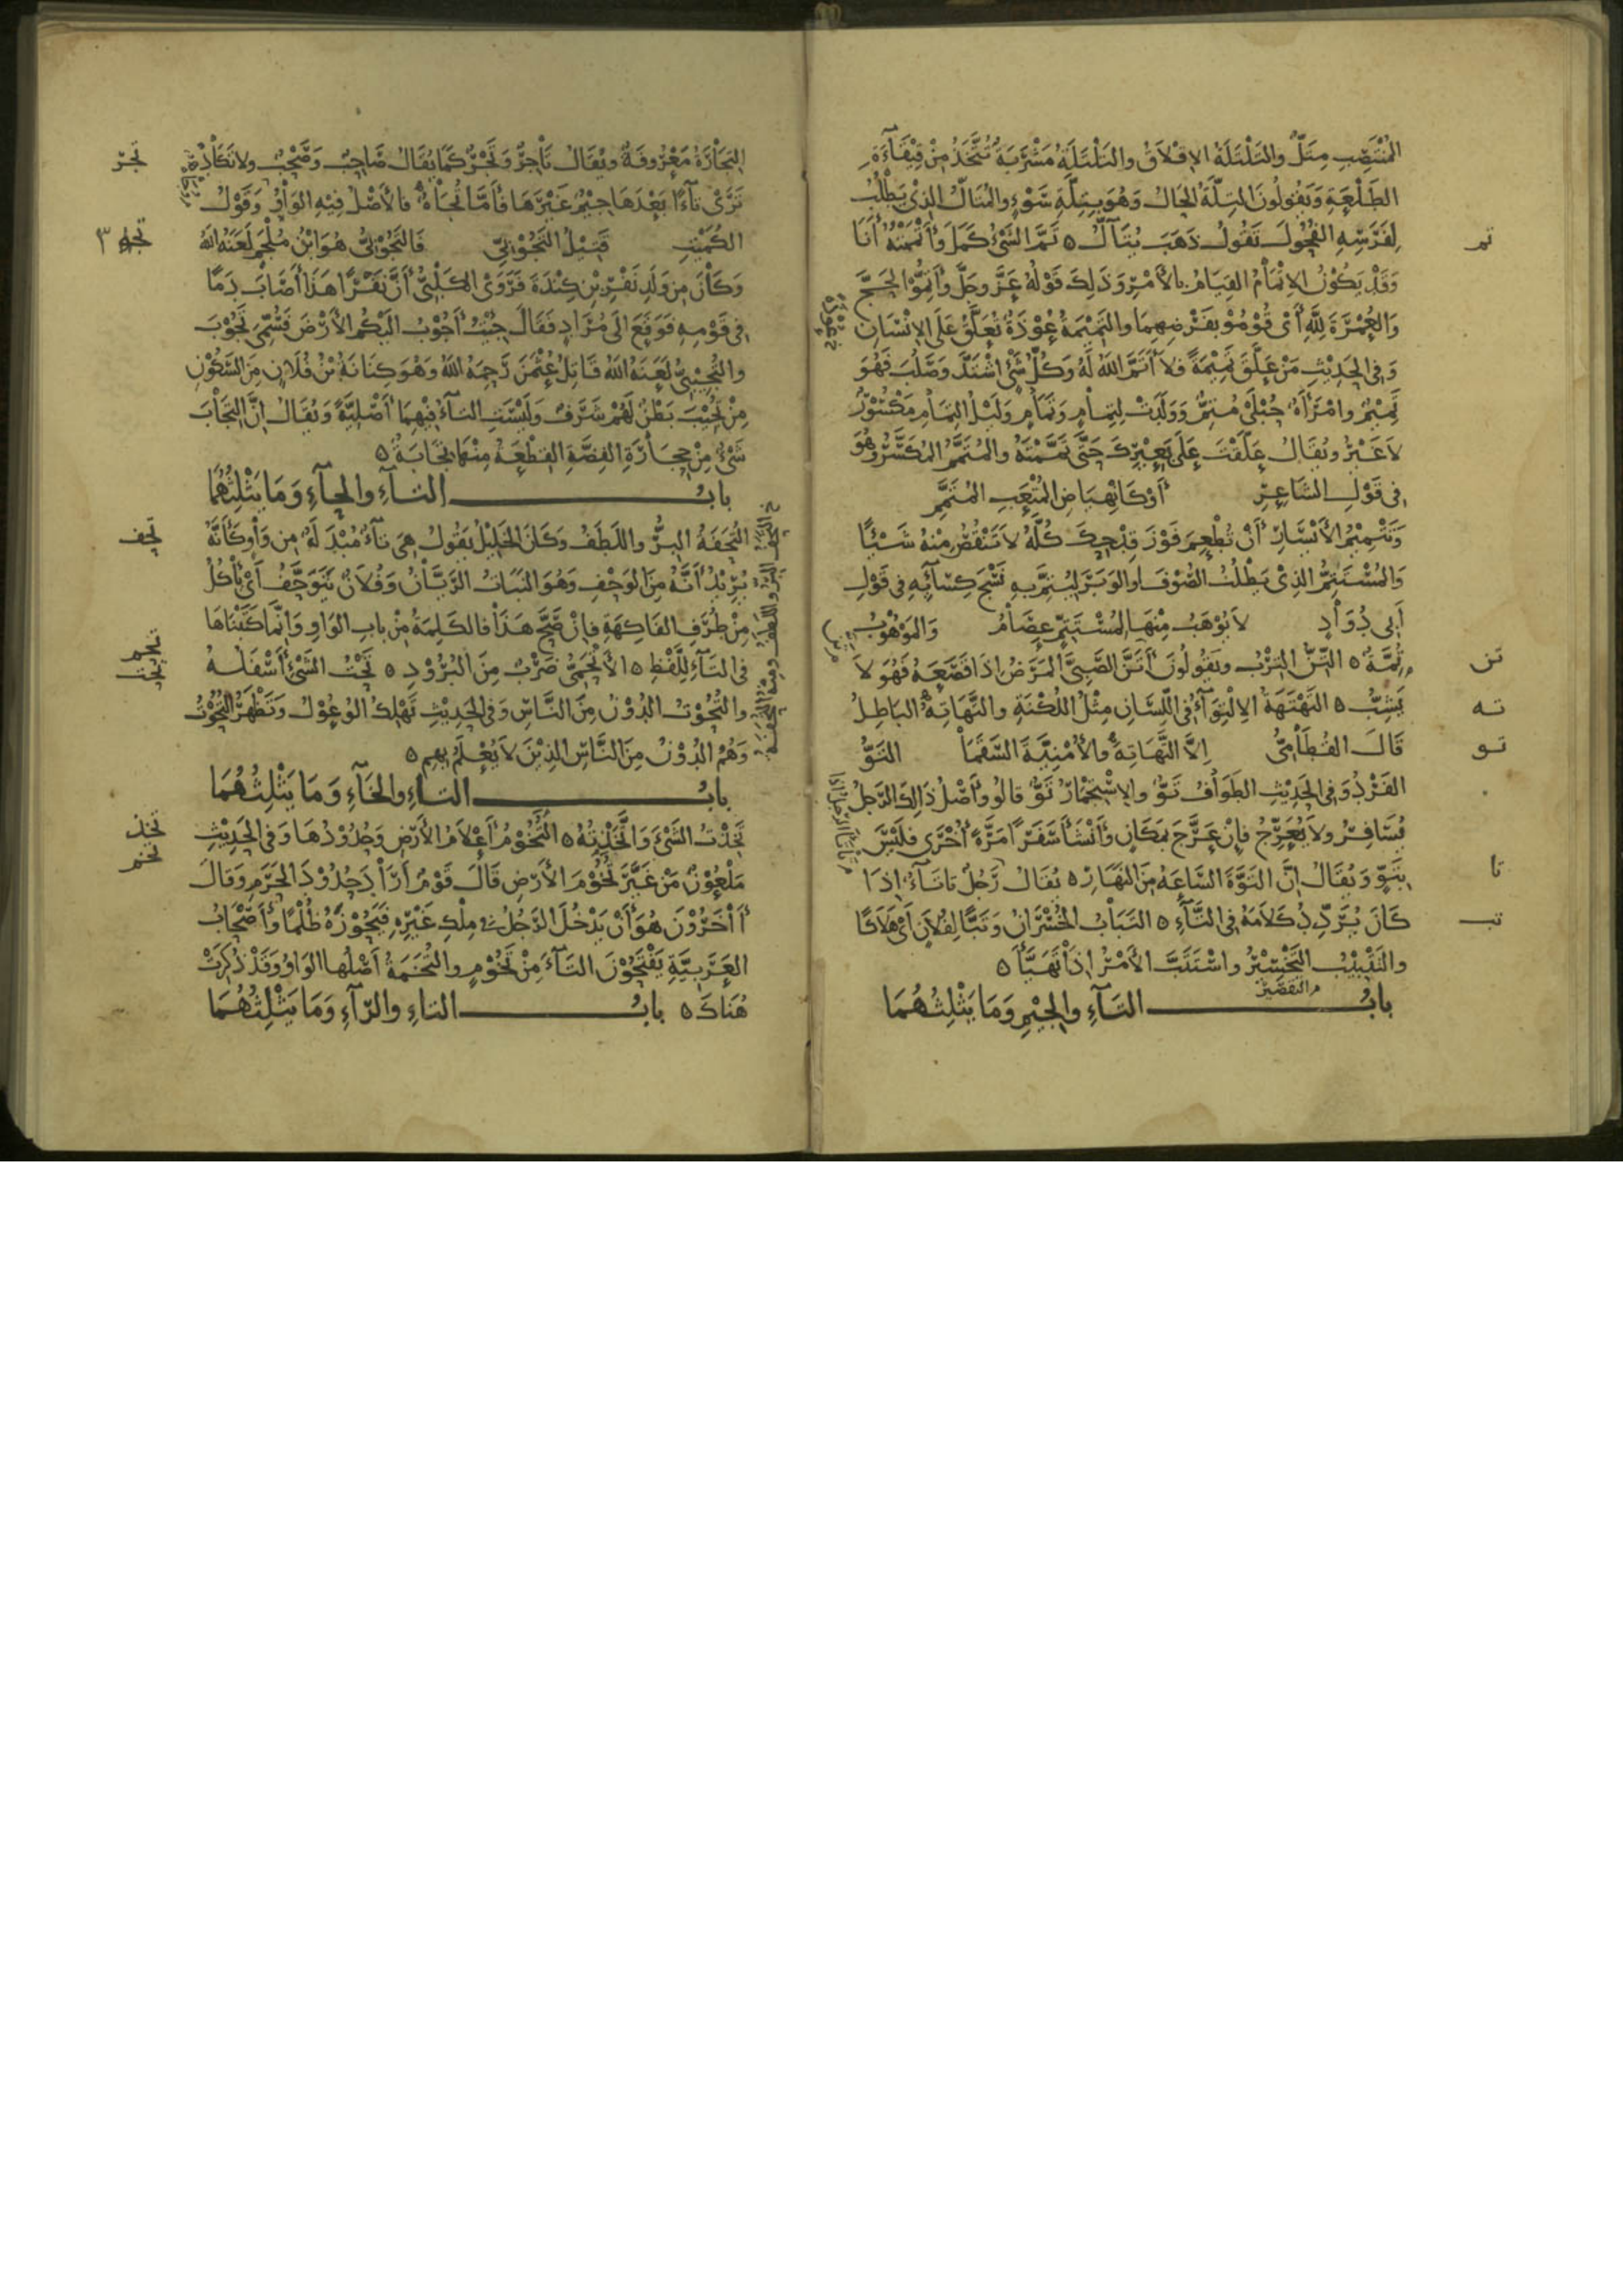 المُنْتَصِبِ مِتَلٌّ والتَلْتَلَةُ الإقْلَاقُ والتَلْتَلَةُ مَشْرَبَةٌ تُتَّخَذُ مِنْ قِيْقَآءَةِ
الطَلْعَةِ وَيَقُولُونَ التِلَّةُ الحَالُ وَهُوَ بِتِلَّةِ سَوْءٍ والمُتَالُّ الذِيْ يَطْلُبُ
لِفَرَسِهِ الفُحُولَ تَقُولُ ذَهَبَ يُتَآلُّ ٥ تَمَّ الشَيْءُ كَمَلَ وَأَتْمَمْتُهُ أَنَا
تم
وَقَدْ يَكُوْنُ الإتْمَامُ القِيَامُ بالأَمْرِ وَذَلِكَ قَوْلُهُ عَزَّ وجَلَّ وَأَتِمُّوا الحَجَّ
وَالعُمْرَةَ لِلَّهِ أَىْ قُوْمُوْ بِفَرْضِهِمَا والتَمِيْمَةُ عُوْذَةٌ تُعَلَّقُ عَلَى الإنْسَانِ
وَفِي الحَدِيْثِ مَنْ عَلَّقَ تَمِيْمَةً فلا أَتَمَّ اللهُ لَهُ وَكُلُّ شَيْءٍ اشْتَدَّ وَصَلُبَ فَهُوَ
تَمِيْمٌ وامْرَأَةٌ حُبْلَىْ مُتِمٌّ وَوَلَدَتْ لِتِمَامٍ وَتَمَامٍ وَلَيْلُ التِمَامِ مَكْسُوْرٌ
لاَ غَيْرُ ويُقَالُ عَلَّقْتَ عَلَى بَعِيْرِكَ حَتَّى تَمَّمْتَهُ والمُتَمَّمُ المُكَسَّرُ وهُوَ
فِى قَوْلِ الشَاعِرِ أَوْ كَانْهِيَاضِ المُتْعَبِ المُتَمَّمِ
وَتَتْمِيْمُ الأَيْسَارِ أَنْ تُطْعِمَ فَوْزَ قِدْحِكَ كُلَّهُ لاَ تَنْقُصُ مِنْهُ شَيْئًا
وَالمُسْتَتِمُّ الذِيْ يَطْلُبُ الصُوْفَ او الوَبَرَ لِيُتِمَّ بِهِ نَسْجَ كِسَآئِهِ فى قَوْلِ
أَبِى دُوَادٍ لاَ يُوْهَبُ مِنْهَا لِمُسْتَتِمٍّ عِصَامُ وَالمَوْهُوْبُ
تُمَّةٌ ٥ التِنُّ التِرْبُ ويَقُولُونَ أَتَنَّ الصَبِيَّ المَرَضُ إذَا قَصَعَهُ فَهُوَ لاَ
تن
يَشِبُّ ٥ التَهْتَهَةُ الإلْتِوَآءُ فى اللِّسَانِ مِثْلُ اللُكْنَةِ والتَهَاتِهُ البَاطِلُ
ته
قَالَ القُطَامِيُّ إلاَّ التَهَاتِهَ والأُمْنِيَّةَ السَقَمَا التَوُّ
تو
الفَرْدُ وَفِى الحَدِيْثِ الطَوَافُ تَوٌّ والإسْتِجْمَارُ تَوٌّ قالُوْ وأَصْلُ ذَالِكَ الرَجلُ
يُسَافِرُ ولاَ يُعَرِّجُ فإنْ عَرَّجَ بِمَكَانٍ وأَنْشَأَ سَفَرًا مَرَّةً أُخْرَى فلَيْسَ
بِتَوٍّ وَيُقَالُ إنَّ التَوَّةَ السَاعَةُ مِنَ النَهَارِ ٥ يُقَالُ رَجُلٌ تَاتَآءٌ إذَا
تا
كَانَ يُرَدِّدُ كَلاَمَهُ فِى التَآءِ ٥ التَبَابُ الخُسْرَانُ وَتَبًّا لِفُلاَنٍ أَىْ هَلاَكًا
تب
والتَتْبِيْبُ التَخْسِيْرُ واسْتَتَبَّ الأَمْرُ إذَا تَهَيَّأَ ٥
بابُ التَآءِ والجِيْمِ وَمَا يَثْلِثُهُمَا
التِجَارَةُ مَعْرُوفَةٌ ويُقَالُ تَاجِرٌ وَتَجْرٌ كَمَا يُقَالُ صَاحِبٌ وَصَحْبٌ ولا تَكَادُ
تجر
تَرَى تآءً بَعْدَهَا جِيْمٌ غَيْرَهَا فأَمَّا تُجَاهُ فالأَصْلُ فِيْهِ الوَاوُ وَقَوْلُ
الكُمَيْتِ قَتِيْلُ التَجُوْبِيِّ فَالتَجُوْبِيُّ هُوَ ابْنُ مُلْجَمٍ لَعَنَهُ اللهُ
وَكَانَ مِنْ وَلَدِ نَفَرٍ مِنْ كِنْدَةَ فَرَوَى الكَلْبِيُّ أَنَّ نَفَرًا هَذَا أَصَابَ دَمًا
فِى قَوْمِهِ فَوَقَعَ إلَى مُرَادٍ فَقَالَ جِئْتُ أَجُوْبُ إلَيْكُمُ الأَرْضَ فَسُمِّيَ تَجُوْبَ
والتُجِيْبِيُّ لَعَنَهُ اللهُ قَاتِلُ عُثْمَنَ رَحِمَهُ اللهُ وَهُوَ كِنَانَةُ بْنُ فُلاَنٍ مِنَ السَكُوْنِ
مِنْ تُجِيْبَ بَطْنٌ لَهُمْ شَرَفٌ وَلَيْسَتِ التَآءُ فِيْهِمَا أَصْلِيَّةً وَيُقَالُ إنَّ التِجَابَ
شَيْءٌ مِنْ حِجَارَةِ الفِضَّةِ القِطْعَةُ مِنْهَا تِجَابَةٌ ٥
بابُ التَآءِ والحآءِ وَمَا يَثْلِثُهُمَا
التُحَفَةُ البِرُّ واللَطَفُ وَكَانَ الخَلِيْلُ يَقُولُ هِىَ تآءٌ مُبْدَلَةٌ مِن وَاوٍ كَأَنَّهُ
تحف
يُرِيْدُ أَنَّهُ مِنَ الوَحْفِ وَهُوَ النَبَاتُ الرَيَّانُ وَفُلاَنٌ يَتَوَحَّفُ أَىْ يَأْكُلُ
مِنْ طُرَفِ الفَاكِهَةِ فإنْ صَحَّ هَذَا فالكَلِمَةُ مِنْ بابِ الوَاوِ وَإنَّمَا كَتَبْنَاهَا
فى التَآءِ لِلَّفْظِ ٥ الأَتْحَمِيُّ ضَرْبٌ مِنَ البُرُوْدِ ٥ تَحْتُ الشَيْءِ أَسْفَلُهُ
تحم
تحت
والتُحُوْتُ الدُوْنُ مِنَ النَّاسِ وَفِى الحَدِيْثِ تَهْلِكُ الوُعُوْلُ وَتَظْهَرُ التُحُوْتُ
وَهُمُ الدُوْنُ مِنَ النَّاسِ الذِيْنَ لاَ يُعْلَمُ بِهِم ٥
بابُ التَاءِ والخَآءِ وَمَا يَثْلِثُهُمَا
تَخِذْتُ الشَيْءَ وَاتَّخَذْتُهُ ٥ التُخُوْمُ أَعْلاَمُ الأَرْضِ وَحُدُوْدُهَا وَفِى الحَدِيْثِ
تخذ
تخم
مَلْعُوْنٌ مَنْ غَيَّرَ تُخُوْمَ الأَرْضِ قَالَ قَوْمٌ أَرَادَ حُدُوْدَ الحَرَمِ وَقَالَ
آخَرُوْنَ هُوَ أَنْ يَدْخُلَ الرَجُلُ فى مِلْكِ غَيْرِهِ فَيَحُوْزَهُ ظُلْمًا وأَصْحَابُ
العَرَبِيَّةِ يَفْتَحُوْنَ التَآءَ مِنْ تَخُوْمٍ والتُخَمَةُ أَصْلُها الوَاوُ وَقَدْ ذُكِرَتْ
هُنَاكَ ٥ بابُ التاءِ والرَآءِ وَمَا يَثْلِثُهُمَا